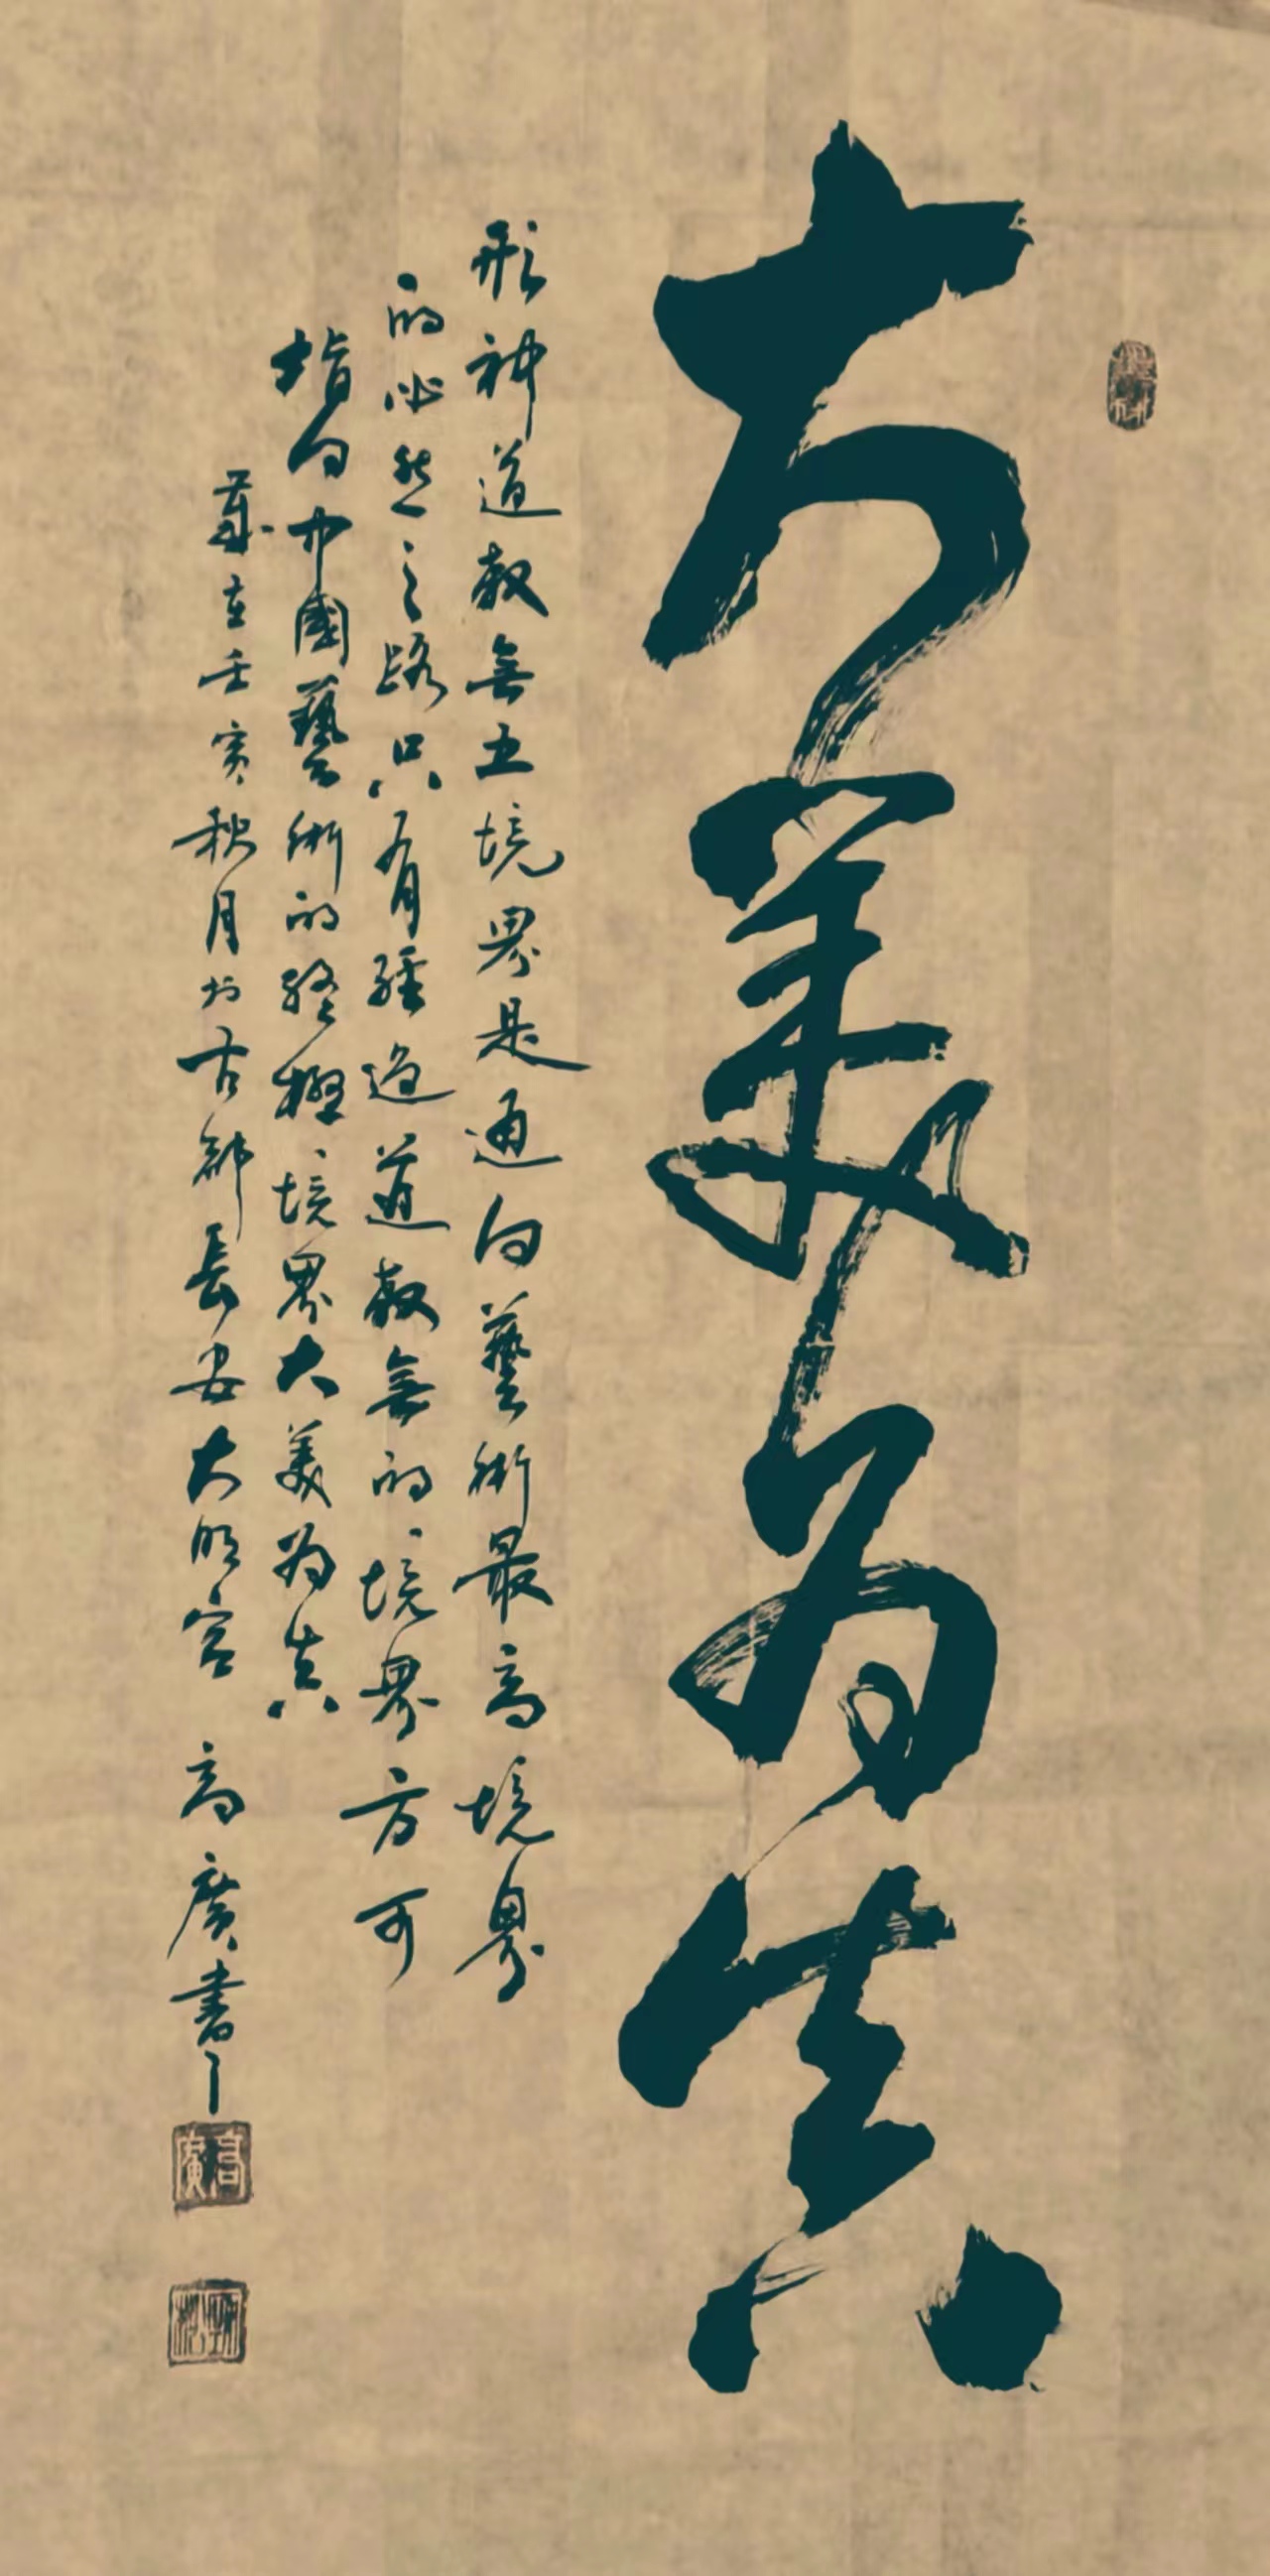 大美为真
形神道教無五境界是通向藝術最高境界
的必然之路只有經過道教無的境界方可
指向中國藝術的終極境界大美为真
歲在壬寅秋月於古都長安大明宮 高廣書
高廣